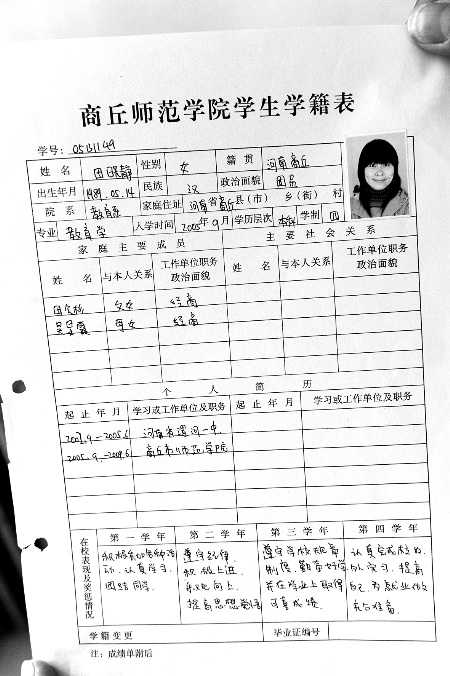 商丘师范学院学生学籍表
学号:
姓名 田晓静 性别 女 籍贯 河南商丘
出生年月 1989.05.14 民族 汉 政治面貌 团员
院系 教育系 家庭住址 河南省商丘县(市) 乡(街) 村
专业 教育学 入学时间 2005年9月 学历层次 学制 四
家庭主要成员 主要社会关系
姓名 与本人关系 工作单位职务政治面貌 姓名 与本人关系 工作单位职务政治面貌
父女 经商
母女 经商
个人简历
起止年月 学习或工作单位及职务 起止年月 学习或工作单位及职务
河南省 一中
2005.9 商丘市师范学院
在校表现及奖惩情况 第一学年 第二学年 第三学年 第四学年
积极参加各种活 遵守纪律 遵守学校规章 认真完成校内
动.认真学习. 积极上进 制度.勤奋好学 外实习.提高
团结同学. 积极向上 并在学业上取得 自己.为就业做
提高思想觉悟 可喜成绩. 充分准备.
学籍变更 毕业证编号
注:成绩单附后